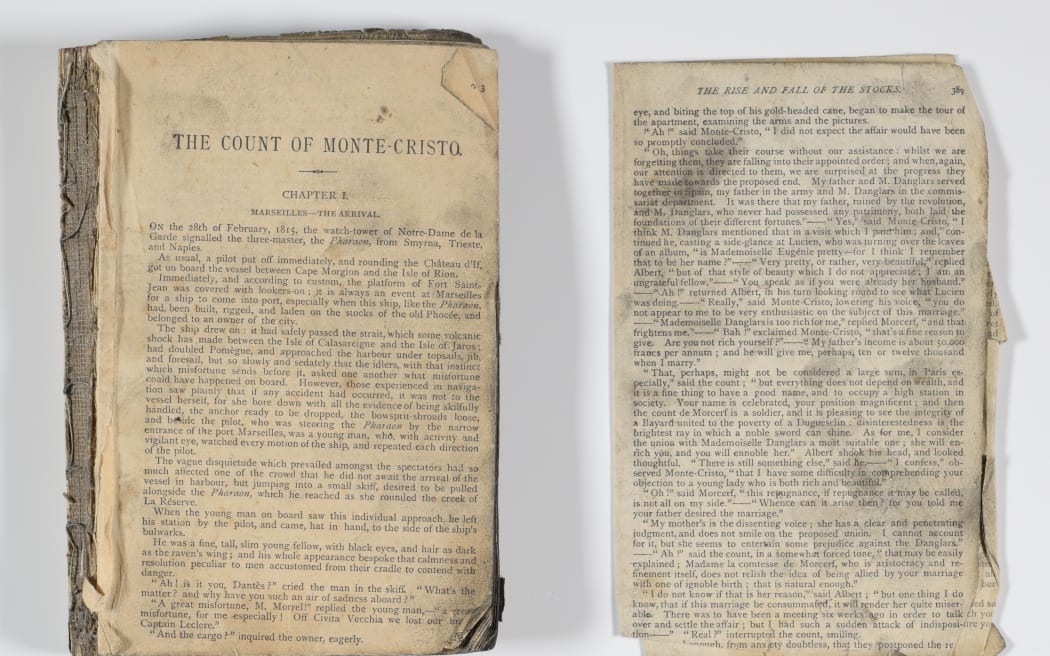 THE COUNT OF MONTE-CRISTO.
CHAPTER I.
MARSEILLES—THE ARRIVAL.
ON the 28th of February, 1815, the watch-tower of Notre-Dame de la
Garde signalled the three-master, the Pharaon, from Smyrna, Trieste,
and Naples.
As usual, a pilot put off immediately, and rounding the Château d'If,
got on board the vessel between Cape Morgion and the Isle of Rion.
Immediately, and according to custom, the platform of Fort Saint-
Jean was covered with lookers-on; it is always an event at Marseilles
for a ship to come into port, especially when this ship, like the Pharaon,
had been built, rigged, and laden on the stocks of the old Phocée, and
belonged to an owner of the city.
The ship drew on: it had safely passed the strait, which some volcanic
shock has made between the Isle of Calasareigne and the Isle of Jaros;
had doubled Pomègue, and approached the harbour under topsails, jib,
and foresail, but so slowly and sedately that the idlers, with that instinct
which misfortune sends before it, asked one another what misfortune
could have happened on board. However, those experienced in naviga-
tion saw plainly that if any accident had occurred, it was not to the
vessel herself, for she bore down with all the evidence of being skilfully
handled, the anchor ready to be dropped, the bowsprit-shrouds loose,
and beside the pilot, who was steering the Pharaon by the narrow
entrance of the port Marseilles, was a young man, who, with activity and
vigilant eye, watched every motion of the ship, and repeated each direction
of the pilot.
The vague disquietude which prevailed amongst the spectators had so
much affected one of the crowd that he did not await the arrival of the
vessel in harbour, but jumping into a small skiff, desired to be pulled
alongside the Pharaon, which he reached as she rounded the creek of
La Réserve.
When the young man on board saw this individual approach, he left
his station by the pilot, and came, hat in hand, to the side of the ship's
bulwarks.
He was a fine, tall, slim young fellow, with black eyes, and hair as dark
as the raven's wing; and his whole appearance bespoke that calmness and
resolution peculiar to men accustomed from their cradle to contend with
danger.
"Ah! is it you, Dantès?" cried the man in the skiff. "What's the
matter? and why have you such an air of sadness aboard?"
"A great misfortune, M. Morrel!" replied the young man,—"a great
misfortune, for me especially! Off Civita Vecchia we lost our
Captain Leclere."
"And the cargo?" inquired the owner, eagerly.
THE RISE AND FALL OF THE STOCKS. 389
eye, and biting the top of his gold-headed cane, began to make the tour of
the apartment, examining the arms and the pictures.
"Ah!" said Monte-Cristo, "I did not expect the affair would have been
so promptly concluded."
"Oh, things take their course without our assistance: whilst we are
forgetting them, they are falling into their appointed order; and when, again,
our attention is directed to them, we are surprised at the progress they
have made towards the proposed end. My father and M. Danglars served
together in Spain, my father in the army and M. Danglars in the commis-
sariat department. It was there that my father, ruined by the revolution,
and M. Danglars, who never had possessed any patrimony, both laid the
foundations of their different fortunes."——"Yes," said Monte-Cristo, "I
think M. Danglars mentioned that in a visit which I paid him; and," con-
tinued he, casting a side-glance at Lucien, who was turning over the leaves
of an album, "is Mademoiselle Eugénie pretty—for I think I remember
that to be her name?"——"Very pretty, or rather, very beautiful," replied
Albert, "but of that style of beauty which I do not appreciate; I am an
ungrateful fellow."——"You speak as if you were already her husband."
——"Ah!" returned Albert, in his turn looking round to see what Lucien
was doing.——"Really," said Monte-Cristo, lowering his voice, "you do
not appear to me to be very enthusiastic on the subject of this marriage."
——"Mademoiselle Danglars is too rich for me," replied Morcerf, "and that
frightens me."——"Bah!" exclaimed Monte-Cristo, "that's a fine reason to
give. Are you not rich yourself?"——"My father's income is about 50,000
francs per annum; and he will give me, perhaps, ten or twelve thousand
when I marry."
"That, perhaps, might not be considered a large sum, in Paris es-
pecially," said the count; "but everything does not depend on wealth, and
it is a fine thing to have a good name, and to occupy a high station in
society. Your name is celebrated, your position magnificent; and then
the count de Morcerf is a soldier, and it is pleasing to see the integrity of
a Bayard united to the poverty of a Duguesclin: disinterestedness is the
brightest ray in which a noble sword can shine. As for me, I consider
the union with Mademoiselle Danglars a most suitable one; she will en-
rich you, and you will ennoble her." Albert shook his head, and looked
thoughtful. "There is still something else," said he.——"I confess," ob-
served Monte-Cristo, "that I have some difficulty in comprehending your
objection to a young lady who is both rich and beautiful."
"Oh!" said Morcerf, "this repugnance, if repugnance it may be called,
is not all on my side."——"Whence can it arise then? for you told me
your father desired the marriage."
"My mother's is the dissenting voice; she has a clear and penetrating
judgment, and does not smile on the proposed union. I cannot account
for it, but she seems to entertain some prejudice against the Danglars."
——"Ah!" said the count, in a somewhat forced tone, "that may be easily
explained; Madame la comtesse de Morcerf, who is aristocracy and re-
finement itself, does not relish the idea of being allied by your marriage
with one of ignoble birth; that is natural enough."
"I do not know if that is her reason," said Albert; "but one thing I do
know, that if this marriage be consummated, it will render her quite miser-
able. There was to have been a meeting six weeks ago in order to talk
over and settle the affair; but I had such a sudden attack of indisposi-
tion——" "Real?" interrupted the count, smiling.
enough, from anxiety doubtless, that they postponed the